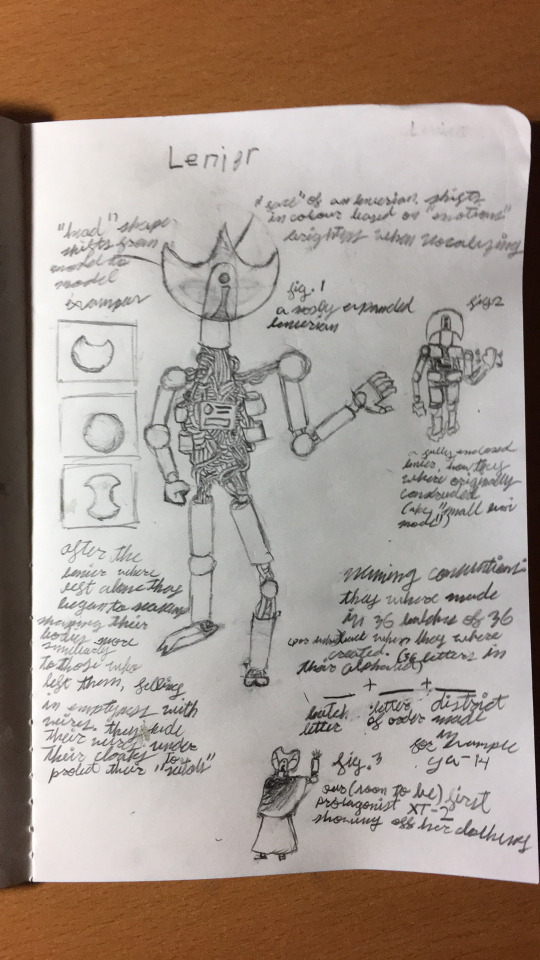 Lenier
"head" shape
shifts from
model to
model
"face" of an lenierian shifts
in colour based on "emotions"
brightens when vocalizing
fig. 1
a expanded
lenierian
fig 2
a fully enclosed
lenier, how they
where originally
constructed
"small
mode")
after the
lenier where
left alone they
began to
shaping their
bodys more
similiarly
to those who
left them, filling
in emptyness with
wires. they hide
their wires under
their cloaks to
protect their
naming conventions
they where made
in 36 batches of 36
when they where
created. (36 letters in
their alphabet)
___ + ___ + ___
batch letter district
letter of order made
in
for example
ya-14
fig. 3
our (soon to be) first
protagonist XT-2
showing off her clothing